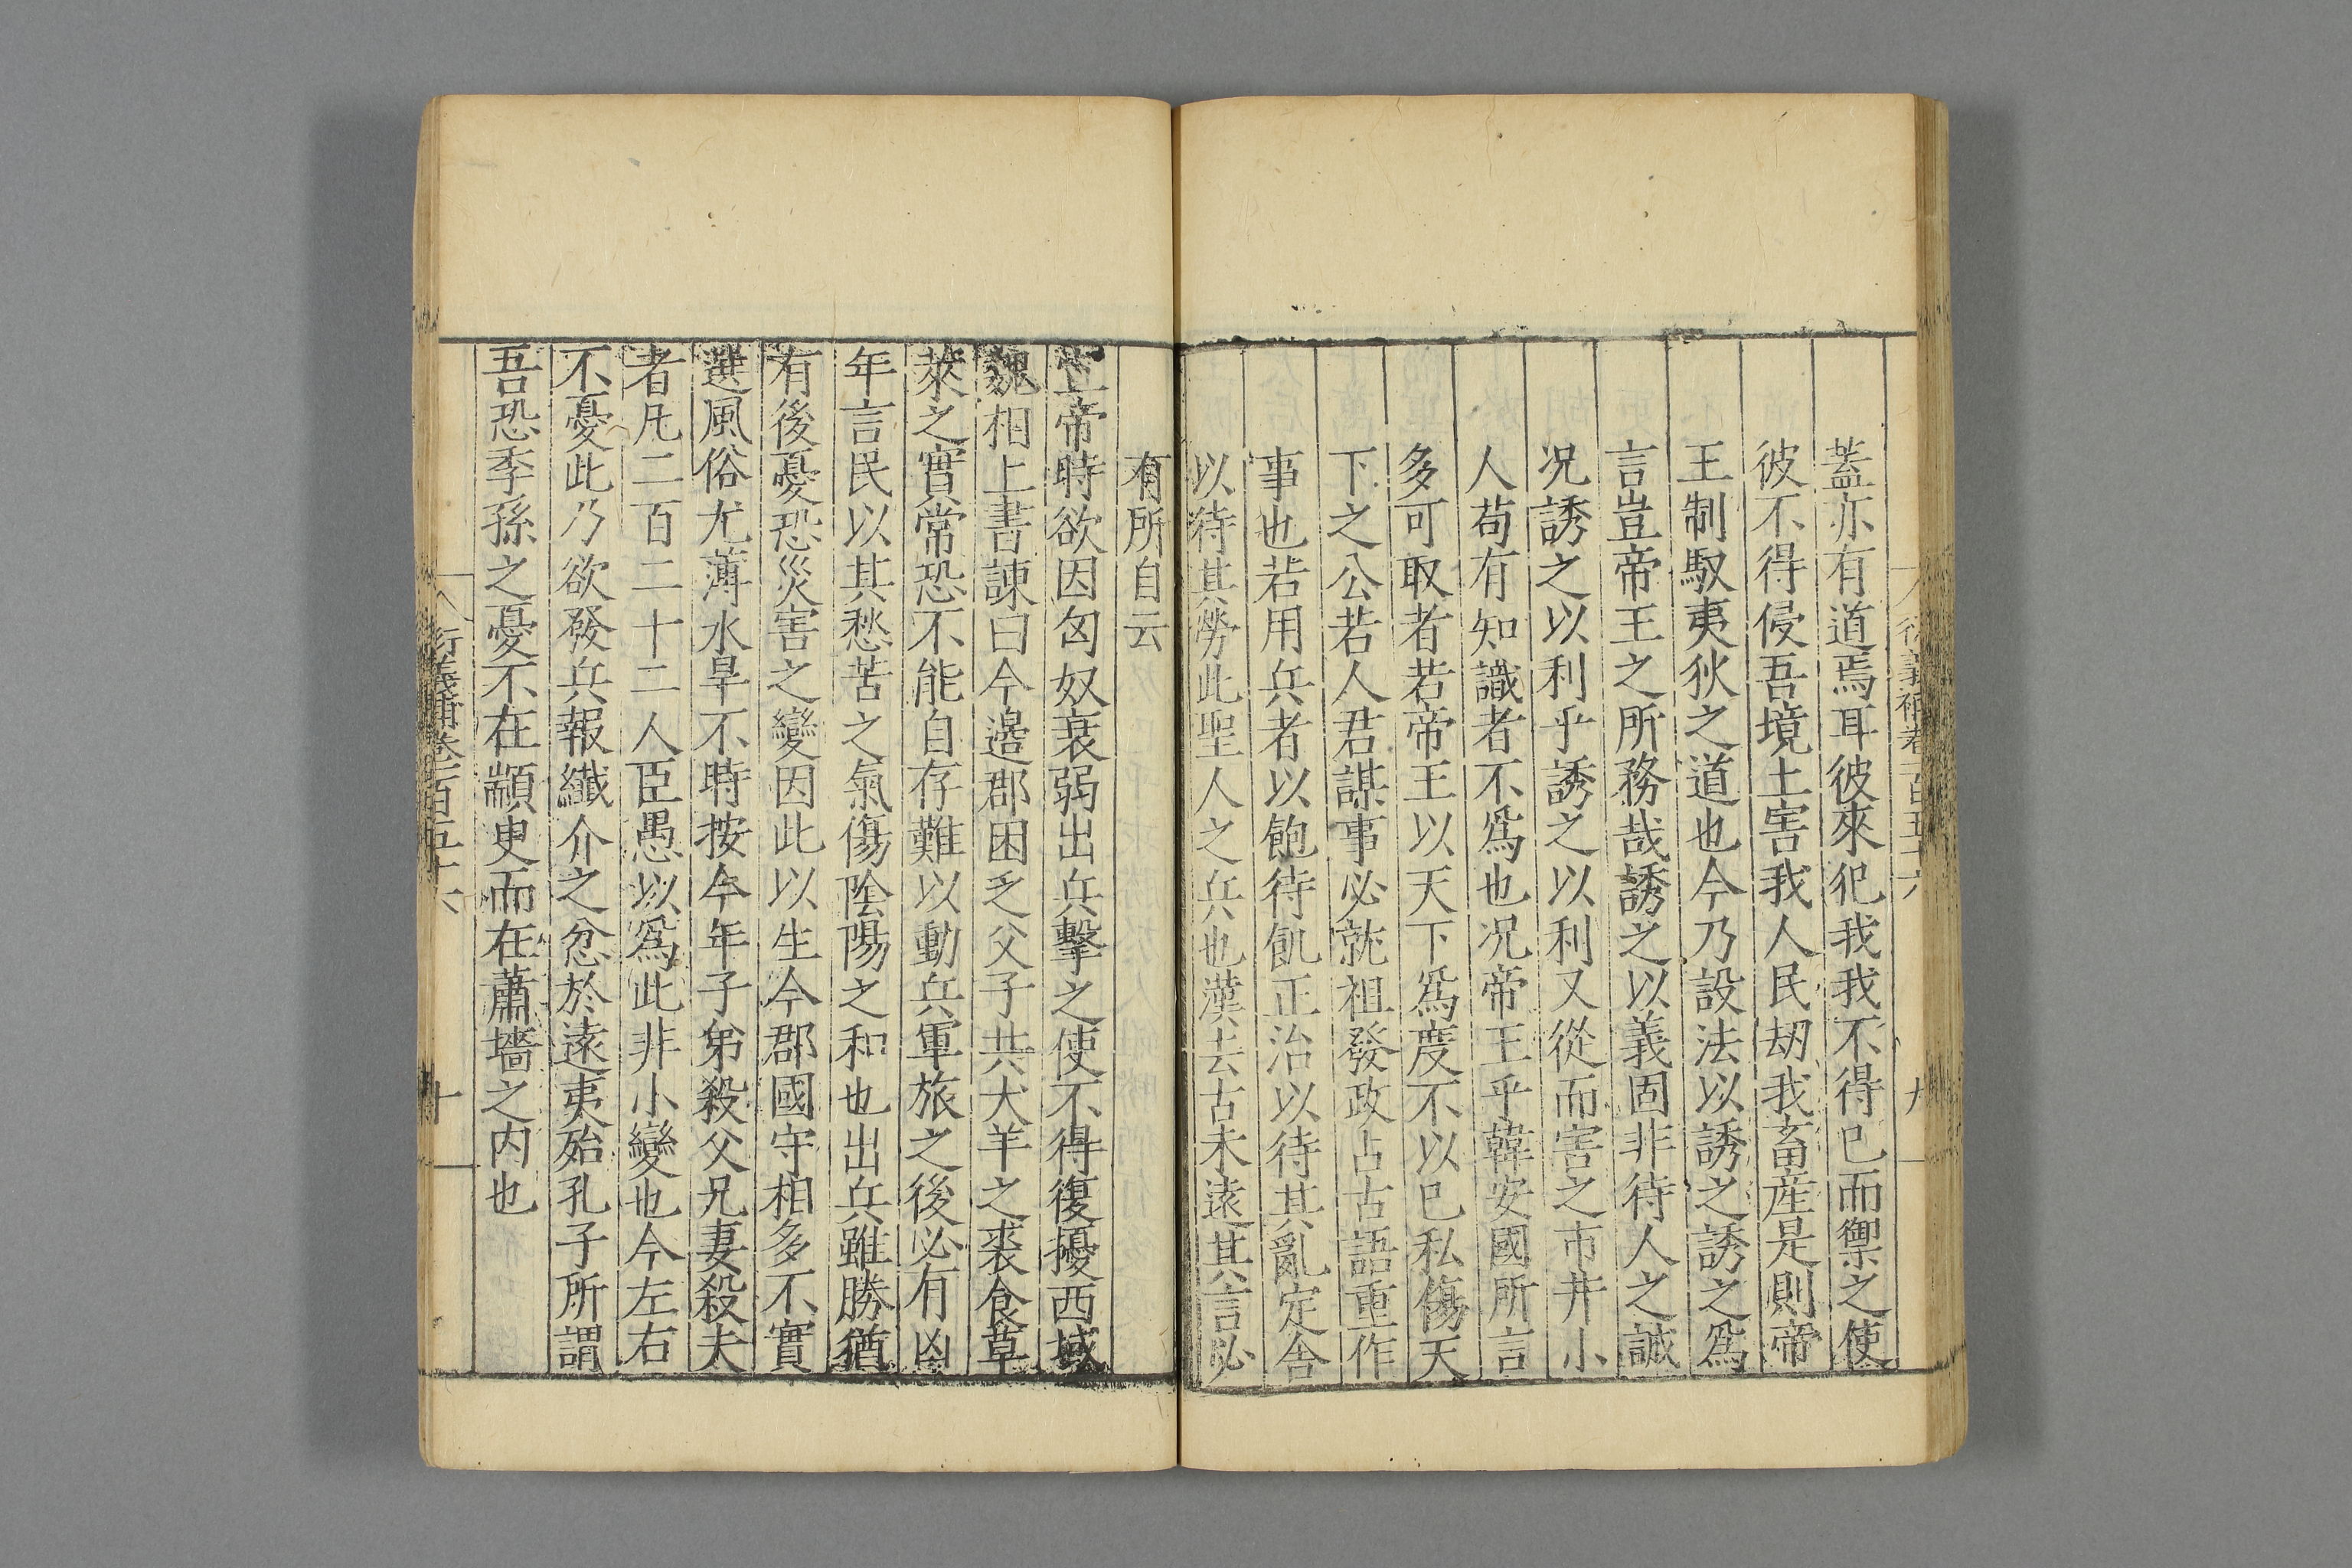 蓋亦有道焉耳彼來犯我我不得已而禦之使
彼不得侵吾境土害我人民劫我畜産是則帝
王制馭夷狄之道也今乃設法以誘之誘之爲
言豈帝王之所務哉誘之以義固非待人之誠
况誘之以利乎誘之以利又從而害之市井小
人苟有知識者不爲也况帝王乎韓安國所言
多可取者若帝王以天下爲度不以已私傷天
下之公若人君謀事必就祖發政占古語重作
事也若用兵者以飽待飢正治以待其亂定舍
以待其勞此聖人之兵也漢去古未遠其言必
有所自云
宣帝時欲因匈奴衰弱出兵擊之使不得復擾西域
魏相上書諫曰今邉郡困乏父子共犬羊之裘食草
萊之實常恐不能自存難以動兵軍旅之後必有凶
年言民以其愁苦之氣傷陰陽之和也出兵雖勝猶
有後憂恐災害之變因此以生今郡國守相多不實
選風俗尤薄水旱不時按今年子弟殺父兄妻殺夫
者凡二百二十二人臣愚以爲此非小變也今左右
不憂此乃欲發兵報纖介之忿於遠夷殆孔子所謂
吾恐季孫之憂不在顓臾而在蕭墻之内也
衍義補卷一百五十六
十